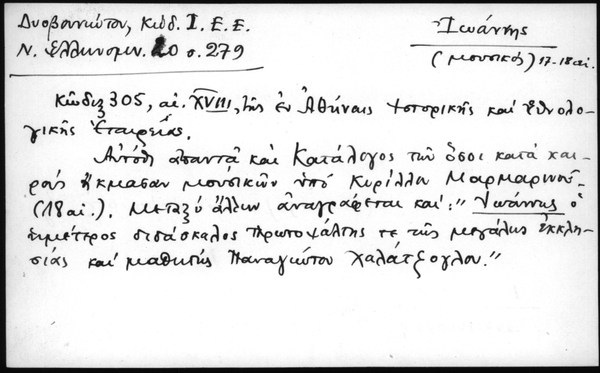 Δυοβουνιώτου, Κώδ. Ι. Ε. Ε.
Ν. Ἑλληνομν. 20 σ. 279
Ἰωάννης
(μουσικός) 17-18 αἰ.
Κῶδιξ 305, αἰ. XVIII, τῆς ἐν Ἀθήναις Ἱστορικῆς καὶ Ἐθνολο-
γικῆς Ἑταιρείας.
Αὐτόθι ἀπαντᾶ καὶ Κατάλογος τῶν ὅσοι κατὰ και-
ροὺς ἤκμασαν μουσικῶν ὑπὸ Κυρίλλου Μαρμαρινοῦ
(18 αἰ.). Μεταξὺ ἄλλων ἀναγράφεται καὶ: "Ἰωάννης ὁ
ἡμέτερος διδάσκαλος Πρωτοψάλτης τε τῆς μεγάλης ἐκκλη-
σίας καὶ μαθητὴς Παναγιώτου Χαλάτζογλου."